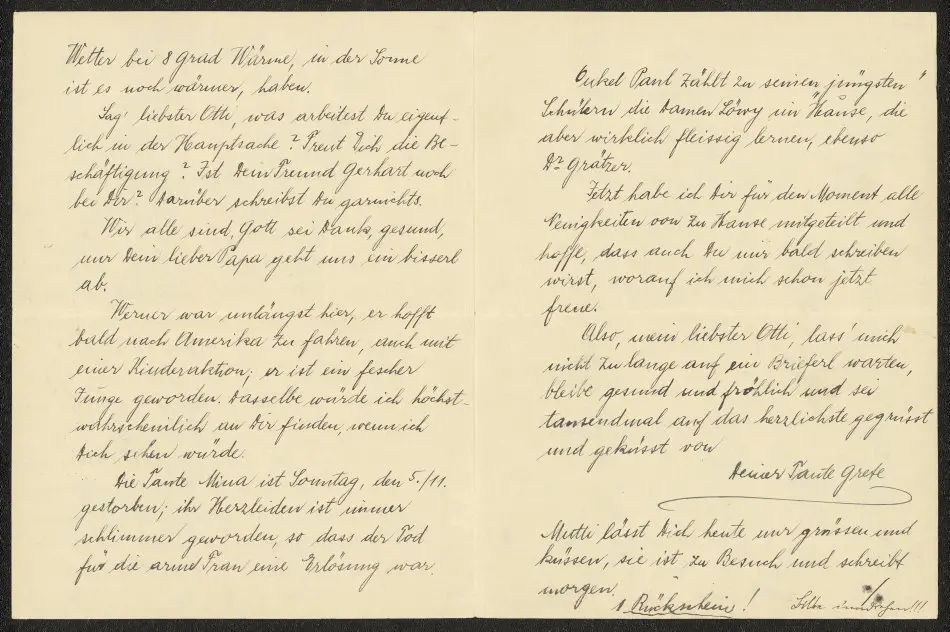 Wetter bei 8 Grad Wärme, in der Sonne
ist es noch wärmer, haben.
Sag' liebster Otti, was arbeitest Du eigent-
lich in der Hauptsache? Freut Dich die Be-
schäftigung? Ist Dein Freund Gerhart noch
bei Dir? Darüber schreibst Du garnichts.
Wir alle sind, Gott sei Dank, gesund,
nur Dein lieber Papa geht uns ein bisserl
ab.
Werner war unlängst hier, er hofft
bald nach Amerika zu fahren, auch mit
einer Kinderaktion; er ist ein fescher
Junge geworden. Dasselbe würde ich höchst-
wahrscheinlich an Dir finden, wenn ich
Dich sehen würde.
Die Tante Mina ist Sonntag, den 5./11.
gestorben; ihr Herzleiden ist immer
schlimmer geworden, so dass der Tod
für die arme Frau eine Erlösung war.
Onkel Paul zählt zu seinen jüngsten "
Schülern die Damen Löwy im Hause, die
aber wirklich fleissig lernen, ebenso
Dr. Grätzer.
Jetzt habe ich Dir für den Moment alle
Neuigkeiten von zu Hause mitgeteilt und
hoffe, dass auch Du mir bald schreiben
wirst, worauf ich mich schon jetzt
freue.
Also, mein liebster Otti, lass' mich
nicht zu lange auf ein Brieferl warten,
bleibe gesund und fröhlich und sei
tausendmal auf das herzlichste gegrüsst
und geküsst von
Deiner Tante Grete
Mutti lässt Dich heute nur grüssen und
küssen, sie ist zu Besuch und schreibt
morgen.
Rückschein! Bitte